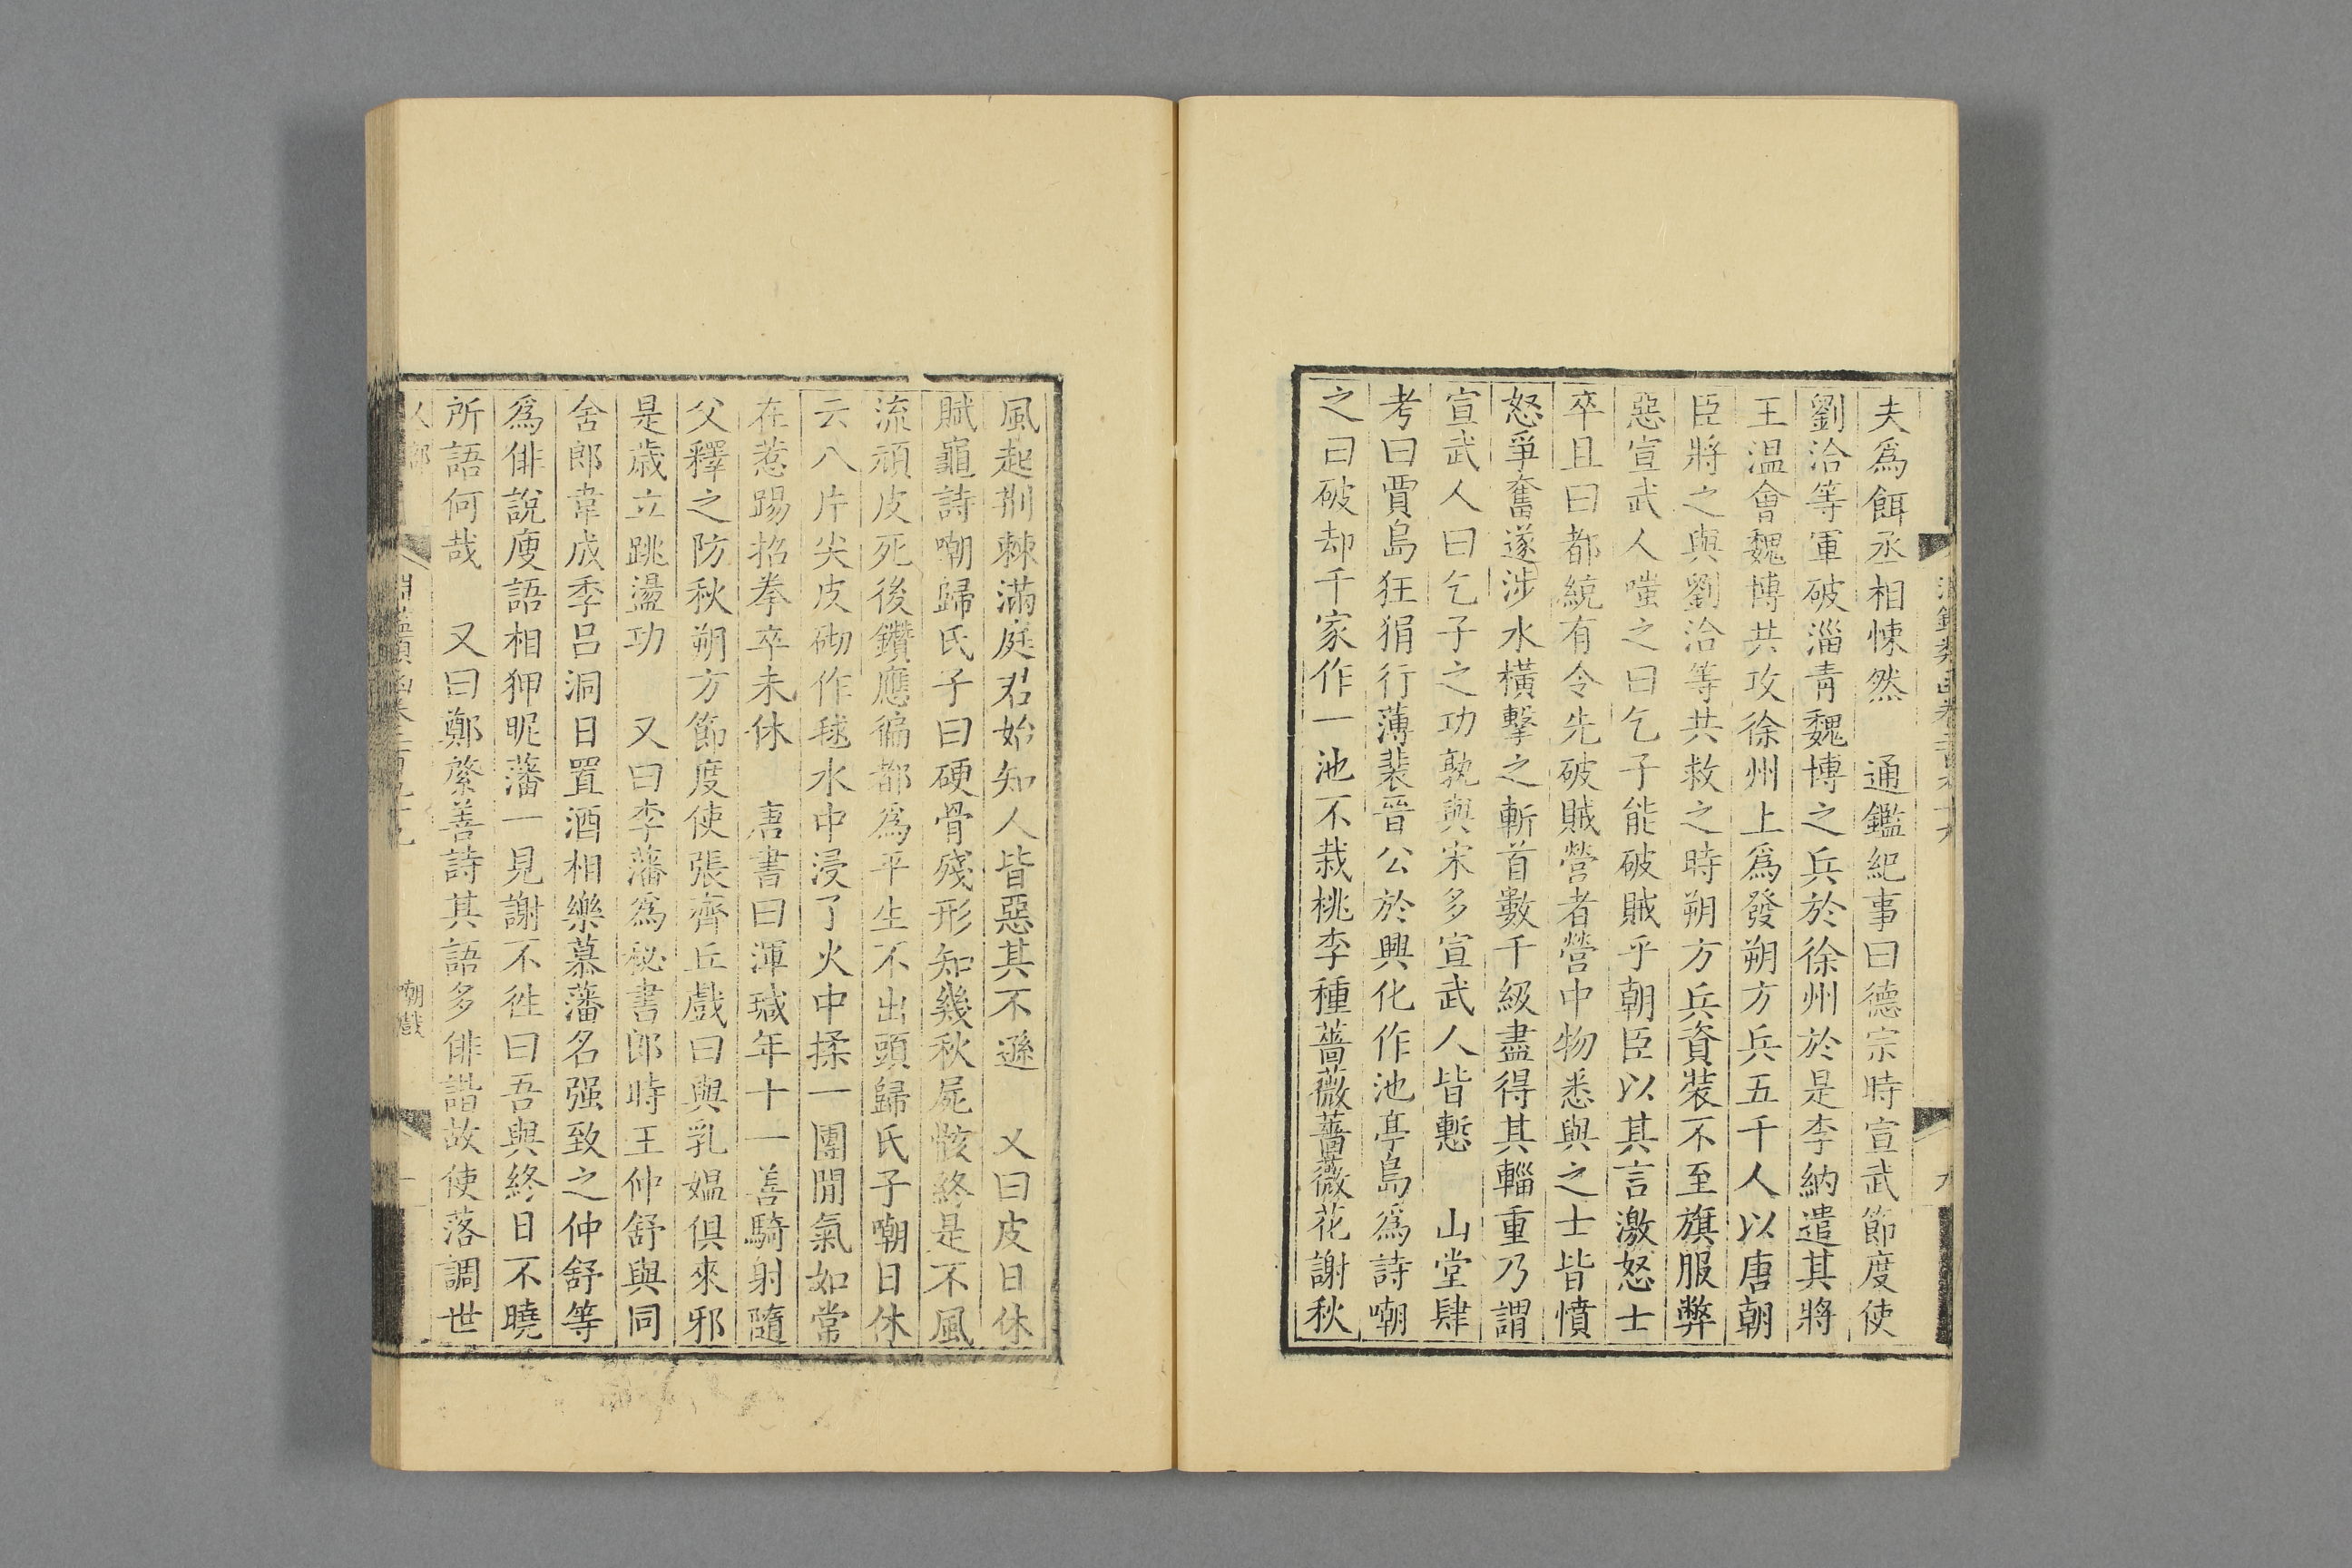 夫爲餌丞相悚然　通鑑紀事曰德宗時宣武節度使
劉洽等軍破淄青魏博之兵於徐州於是李納遣其將
王溫會魏博共攻徐州上爲發朔方兵五千人以唐朝
臣將之與劉洽等共救之時朔方兵資裝不至旗服弊
惡宣武人嗤之曰乞子能破賊乎朝臣以其言激怒士
卒且曰都統有令先破賊營者營中物悉與之士皆憤
怒爭奮遂涉水橫擊之斬首數千級盡得其輜重乃謂
宣武人曰乞子之功孰與宋多宣武人皆慙　山堂肆
考曰賈島狂狷行薄裴晉公於興化作池亭島爲詩嘲
之曰破却千家作一池不栽桃李種薔薇薔薇花謝秋
風起荆棘滿庭君始知人皆惡其不遜　又曰皮日休
賦龜詩嘲歸氏子曰硬骨殘形知幾秋屍骸終是不風
流頑皮死後鑽應徧都爲平生不出頭歸氏子嘲日休
云八片尖皮砌作毬水中浸了火中揉一團閒氣如常
在惹踢招拳卒未休　唐書曰渾瑊年十一善騎射隨
父釋之防秋朔方節度使張齊丘戲曰與乳媼俱來邪
是歲立跳盪功　又曰李藩爲秘書郎時王仲舒與同
舍郎韋成季呂洞日置酒相樂慕藩名强致之仲舒等
爲俳說廋語相狎昵藩一見謝不徃曰吾與終日不曉
所語何哉　又曰鄭綮善詩其語多俳諧故使落調世
嘲戲